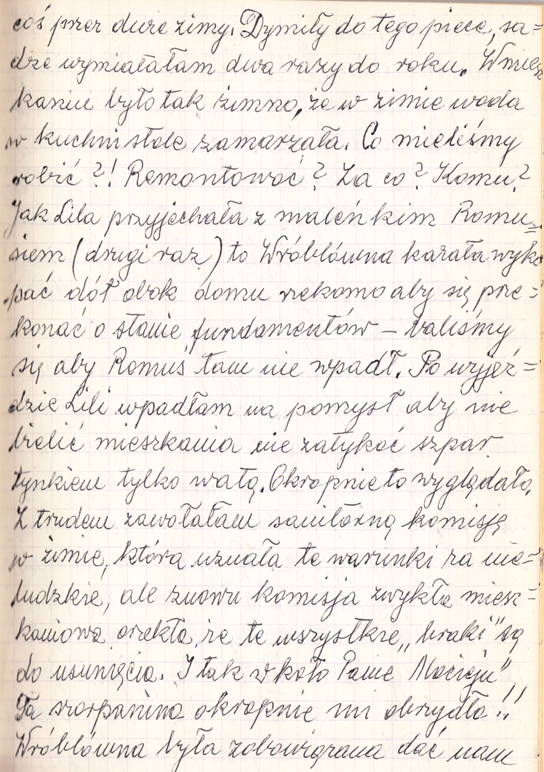 coś przez duże zimy. Dymiły do tego piece, sa=
dze wymiatałam dwa razy do roku. W miesz
kaniu było tak zimno, że w zimie woda
w kuchni stale zamarzała. Co mieliśmy
robić?! Remontować? Za co? Komu?
Jak Lila przyjechała z maleńkim Romu=
siem (drugi raz) to Wróblówna kazała wyko
pać dół obok domu rzekomo aby się prze=
konać o stanie fundamentów – baliśmy
się aby Romuś tam nie wpadł. Po wyjeź=
dzie Lili wpadłam na pomysł aby nie
bielić mieszkania nie zatykać szpar
tynkiem tylko watą. Okropnie to wyglądało.
Z trudem zawołałam sanitarną komisję
w zimie, która uznała te warunki za nie=
ludzkie, ale znowu komisja zwykła miesz=
kaniowa orzekła, że te wszystkie „braki" są
do usunięcia. I tak w koło Panie Macieju"
Ta szarpanina okropnie mi obrzydła!!
Wróblówna była zobowiązana dać nam